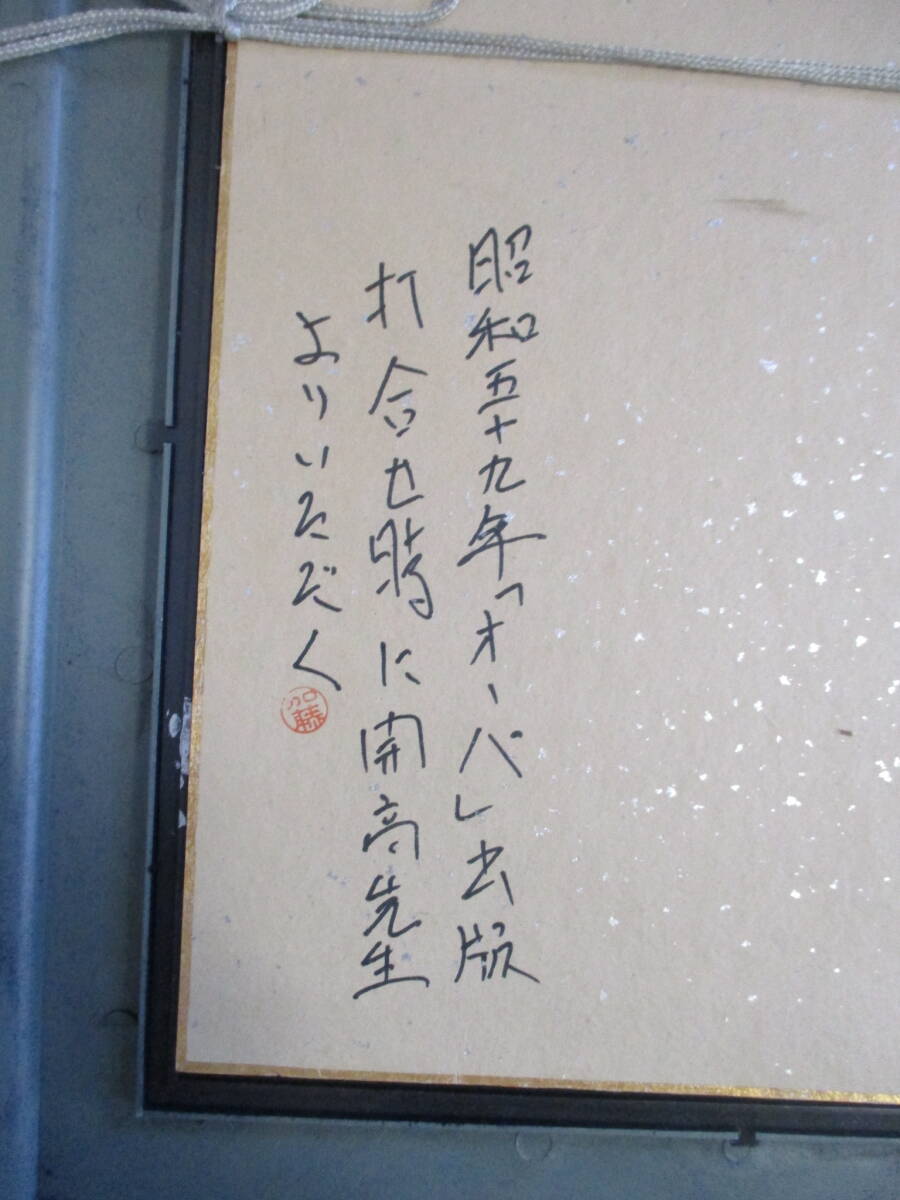 昭和五十九年「オーパ」出版
打合せ時に開高先生
よりいただく
加藤